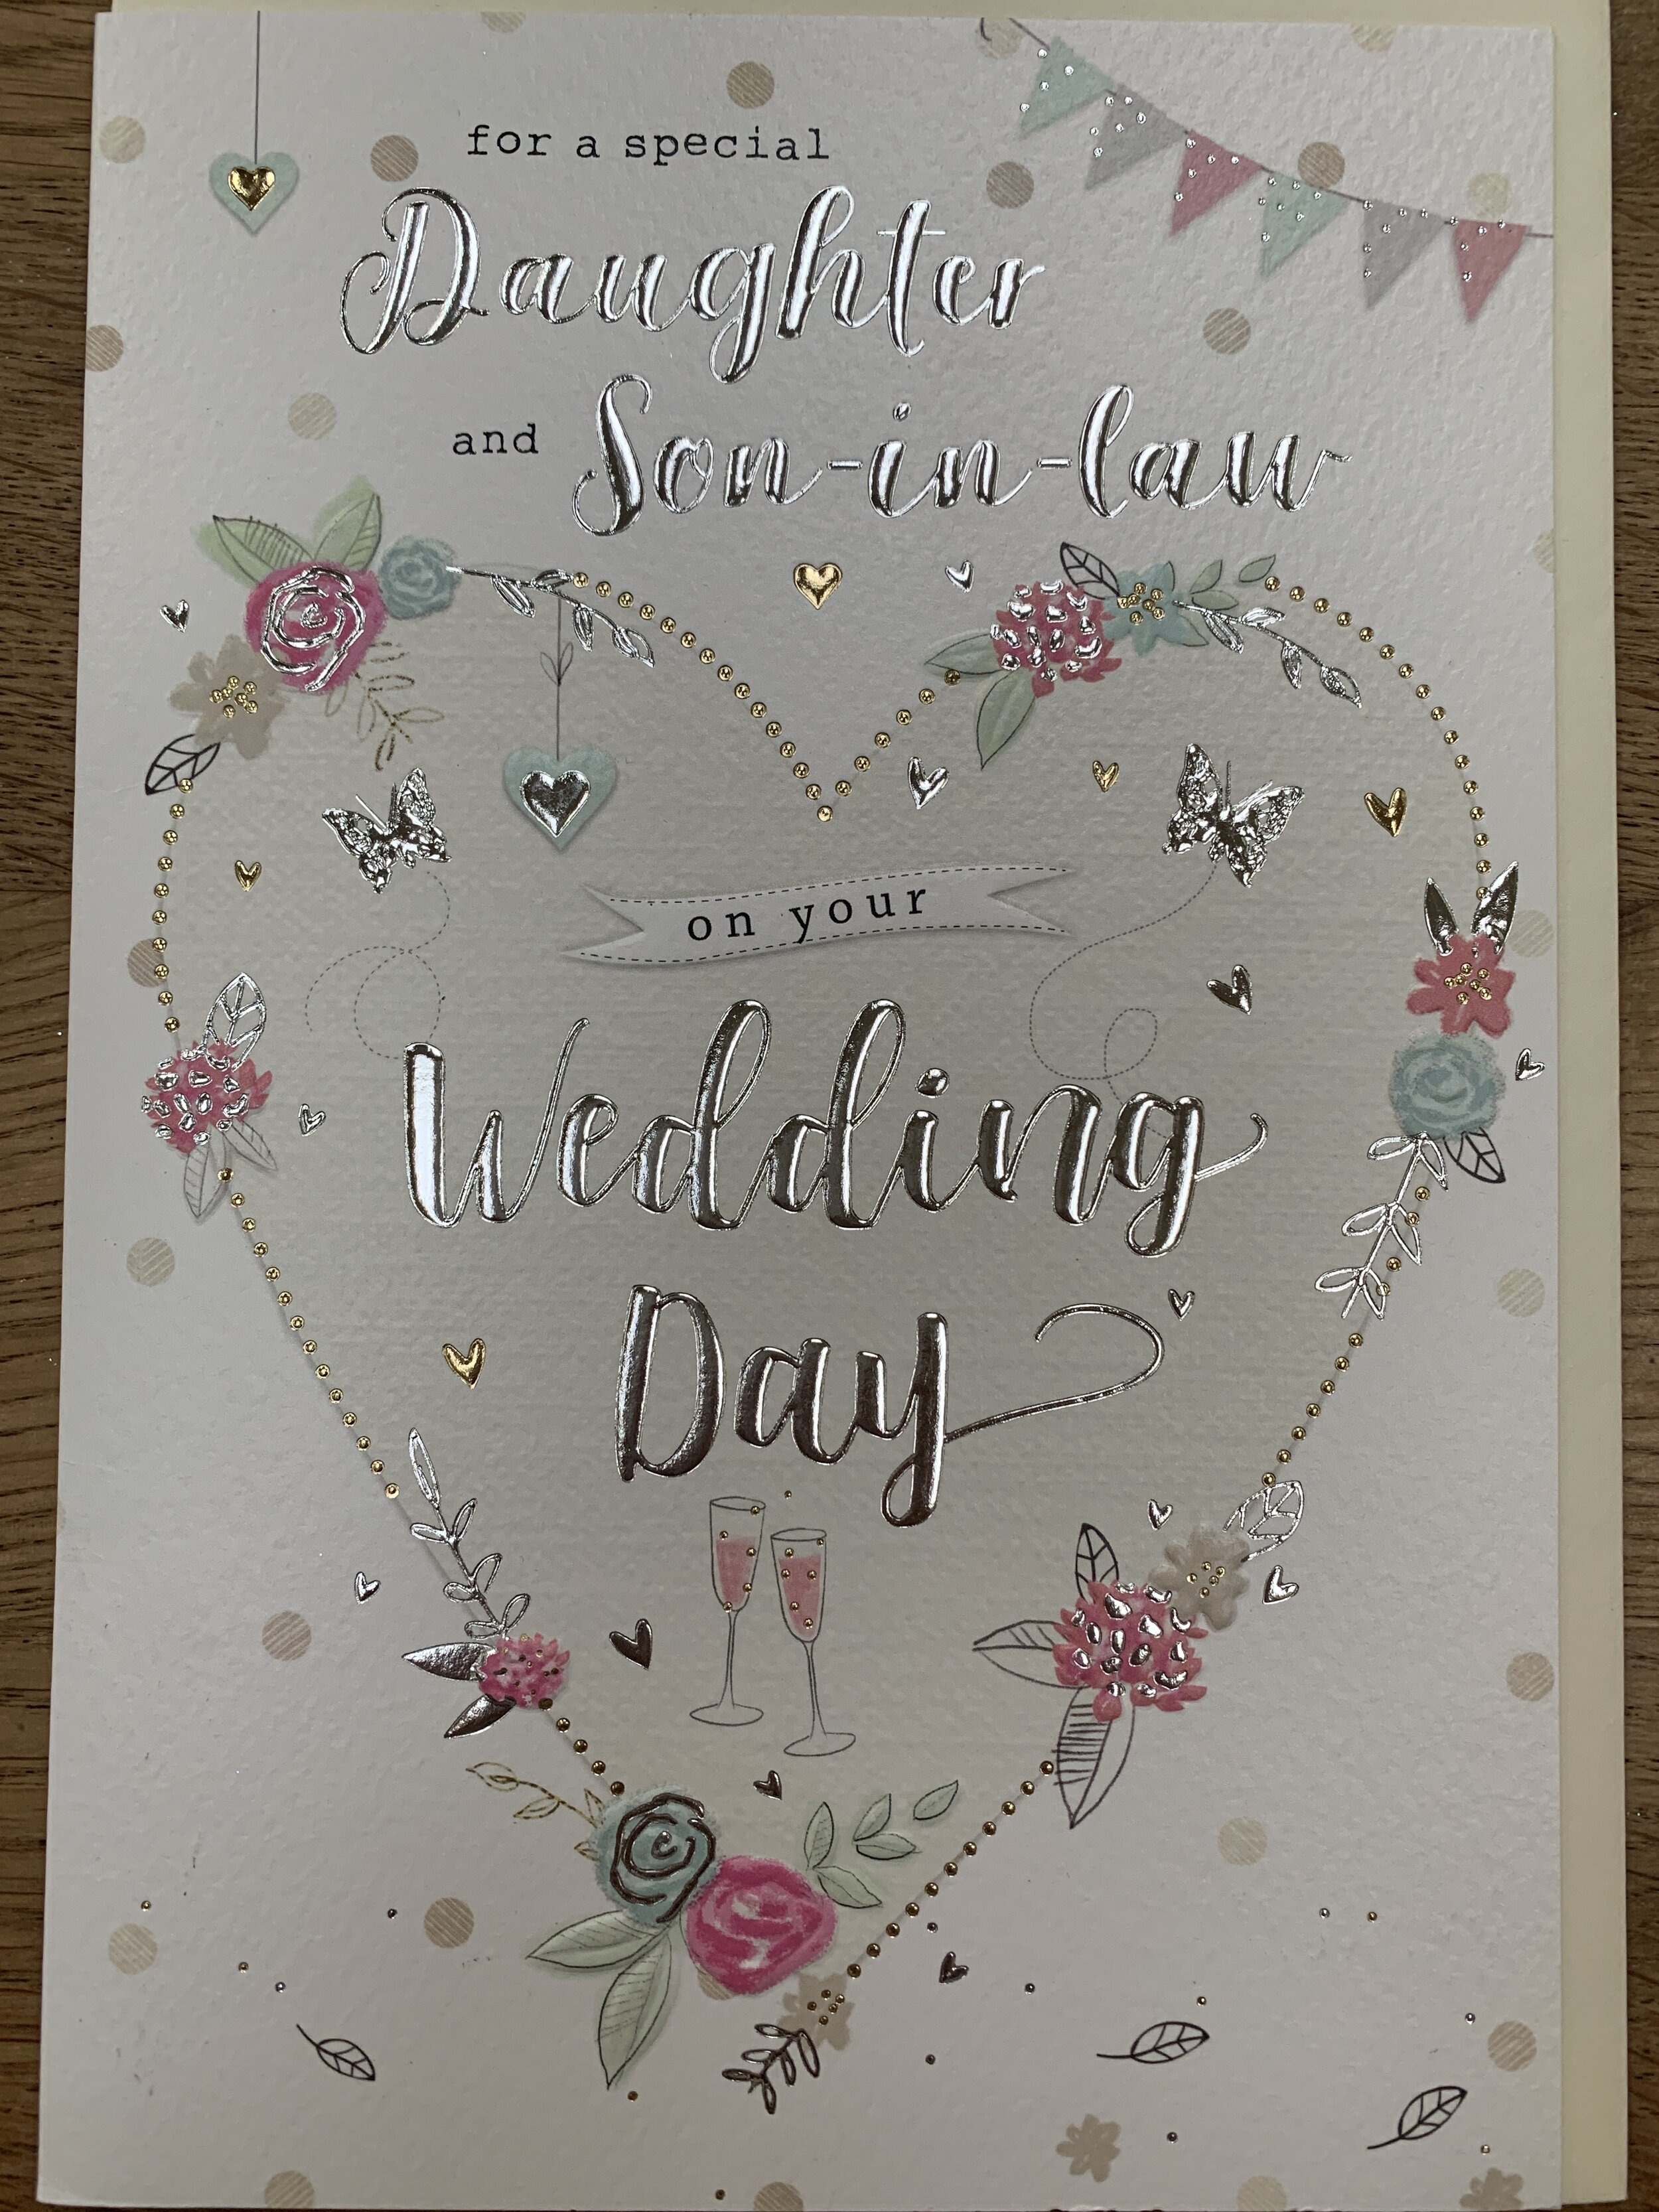 for a special
Daughter
and Son-in-law
on your
Wedding
Day